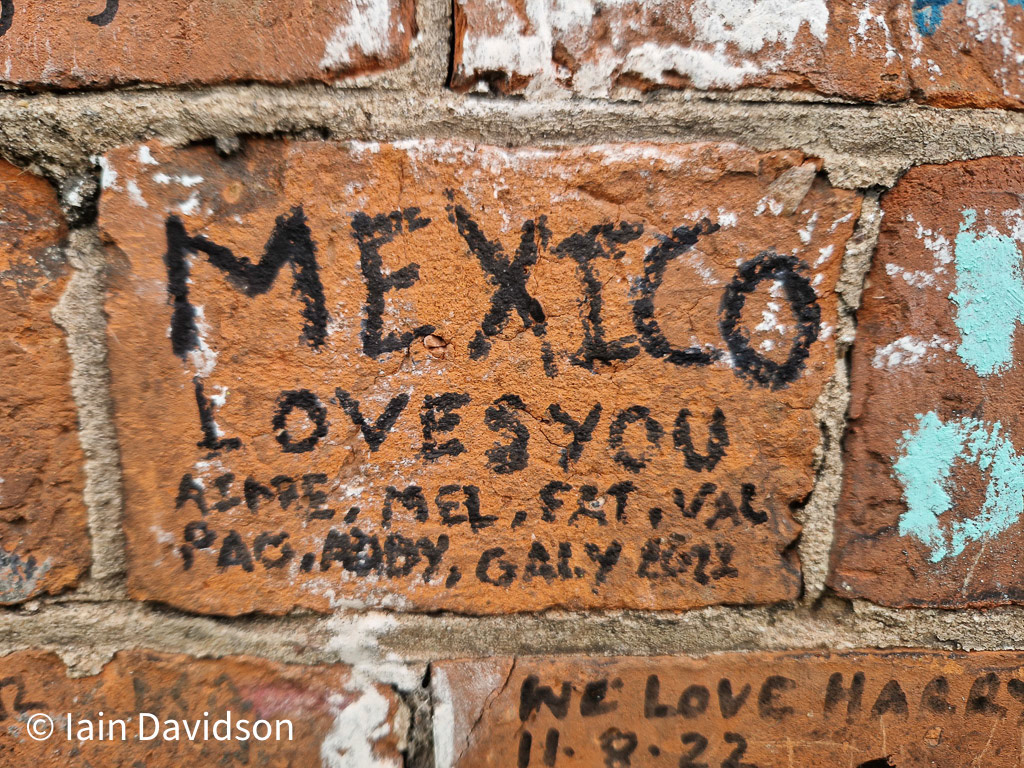 MEXICO
LOVES YOU
AIMEE, MEL, FAT, VAL
PAO, ABBY, GALY 2022
WE LOVE HARRY
11.8.22
© Iain Davidson